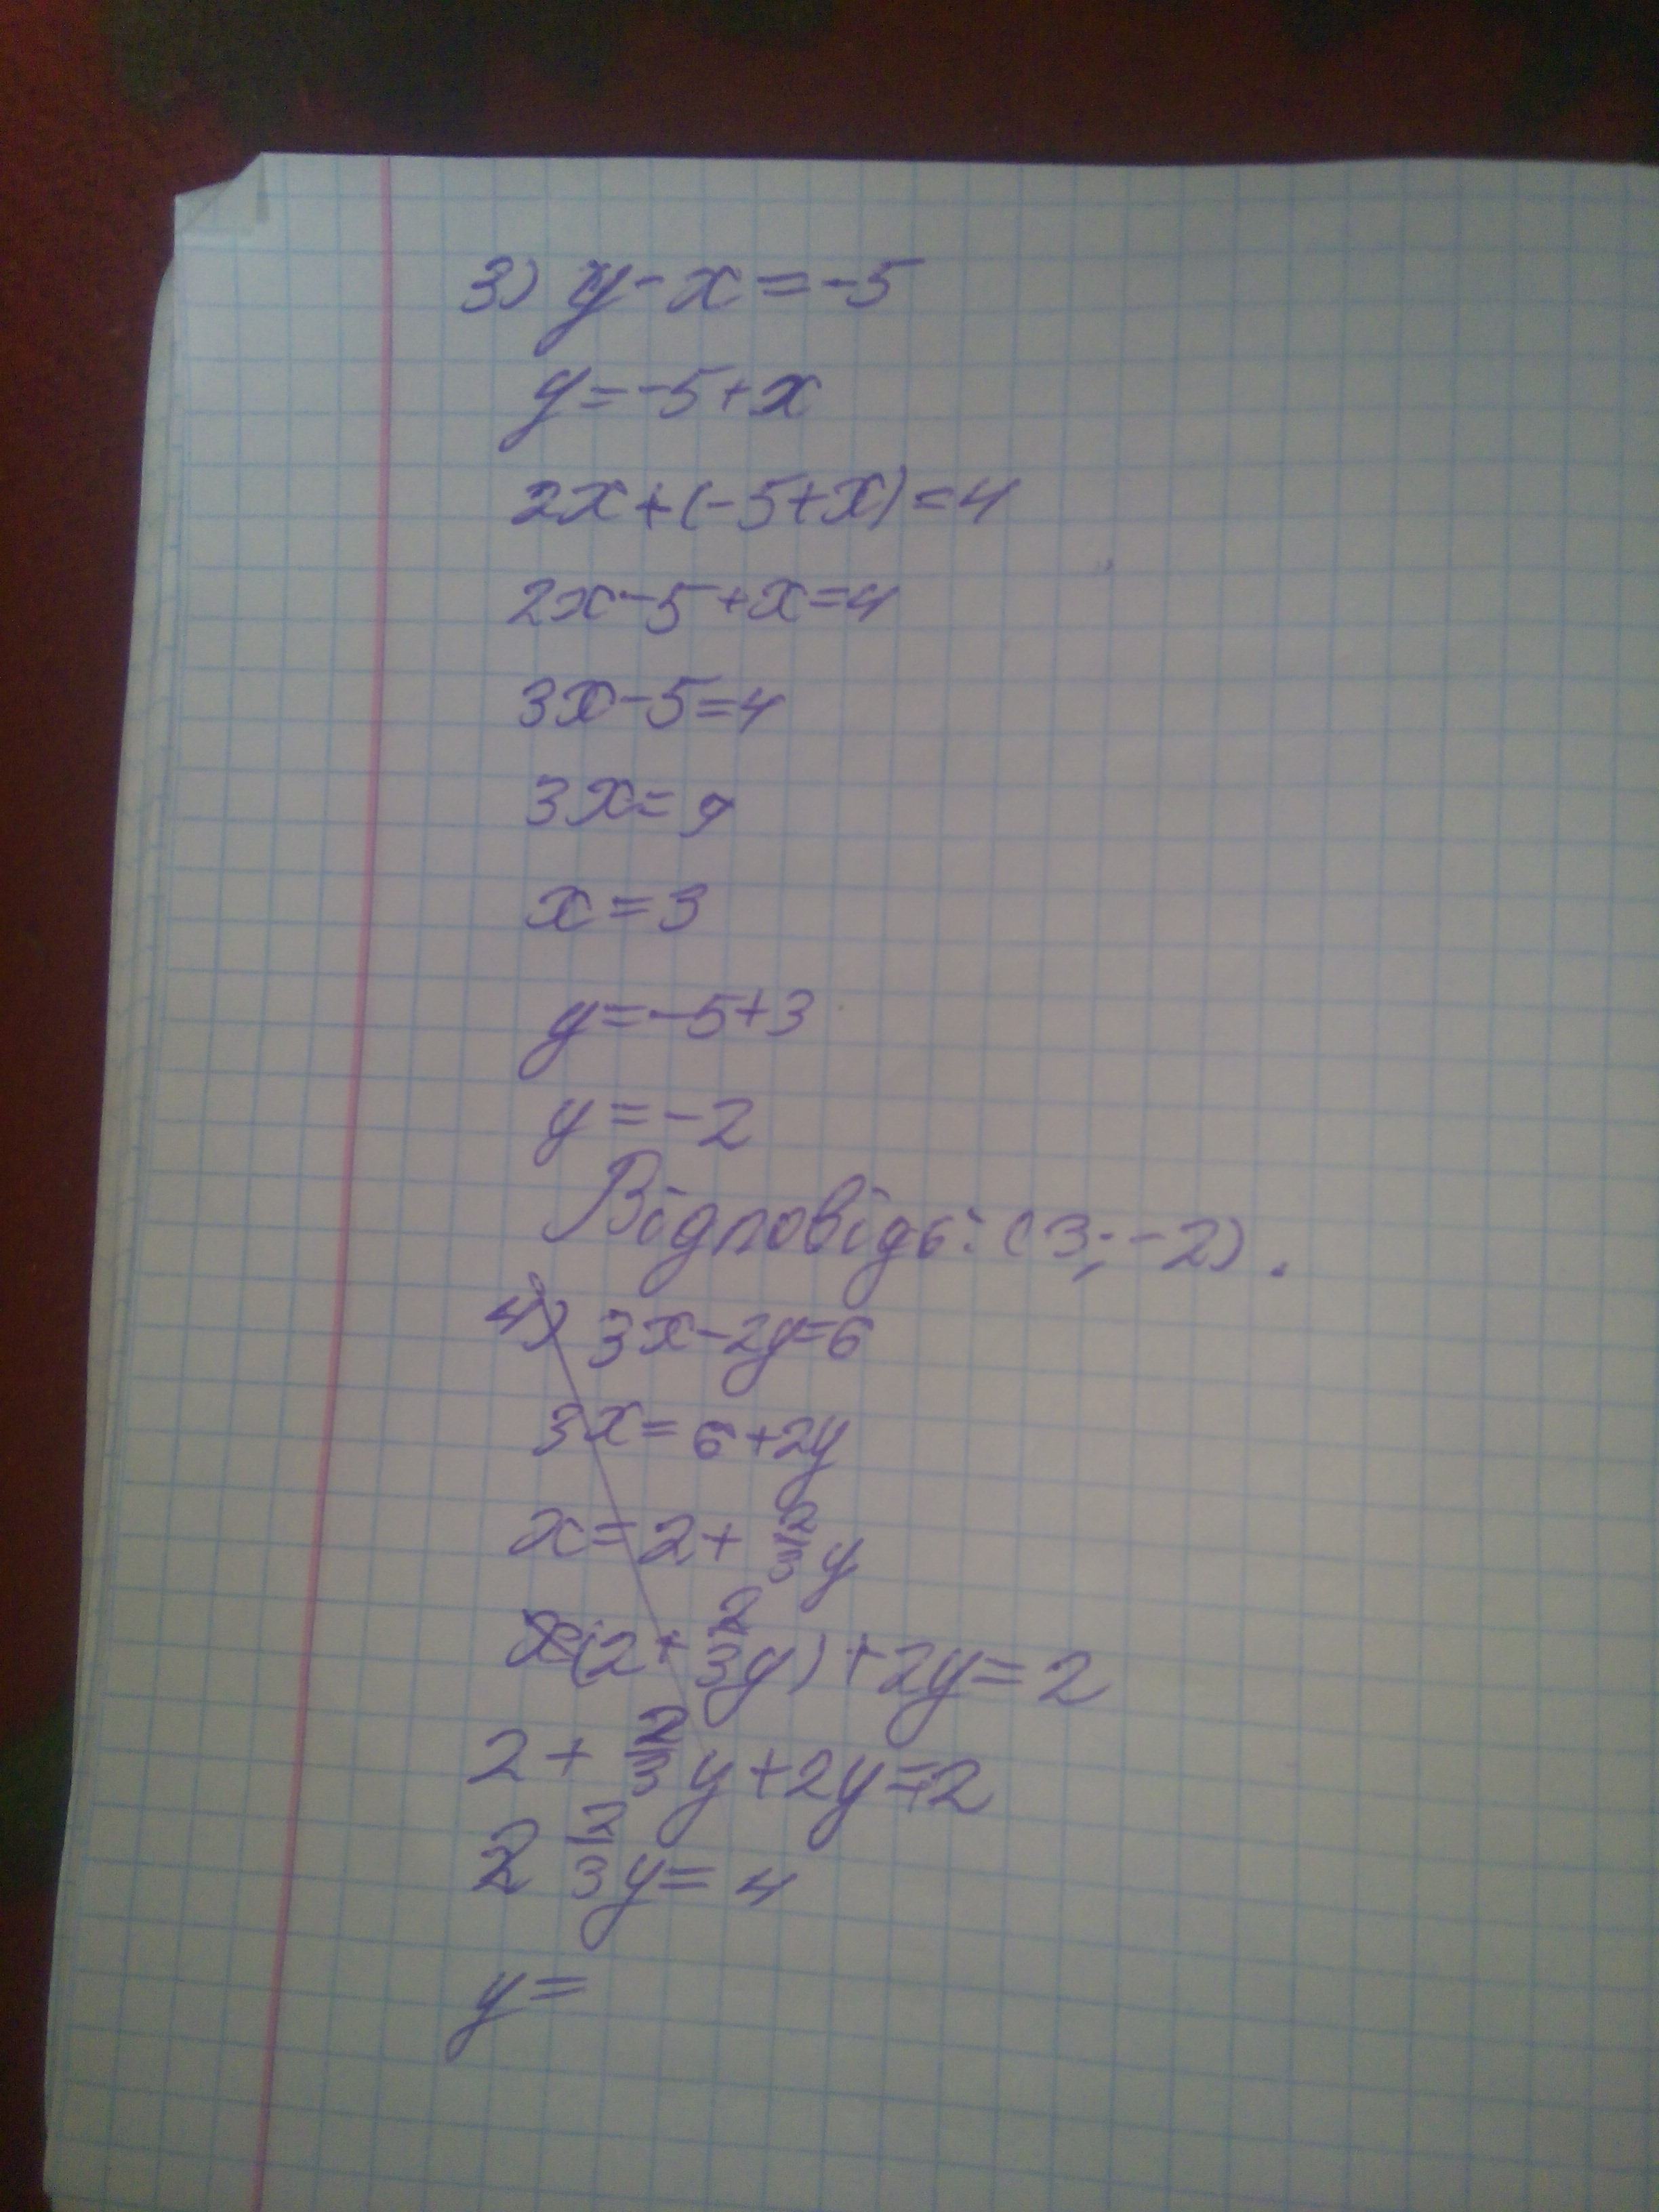 3) y-x=-5
y=-5+x
2x+(-5+x)=4
2x-5+x=4
3x-5=4
3x=9
x=3
y=-5+3
y=-2
Відповідь: (3;-2).
4) 3x-2y=6
3x=6+2y
x=2+2/3y
(2+2/3y)+2y=2
2+2/3y+2y=2
2 2/3y=4
y=